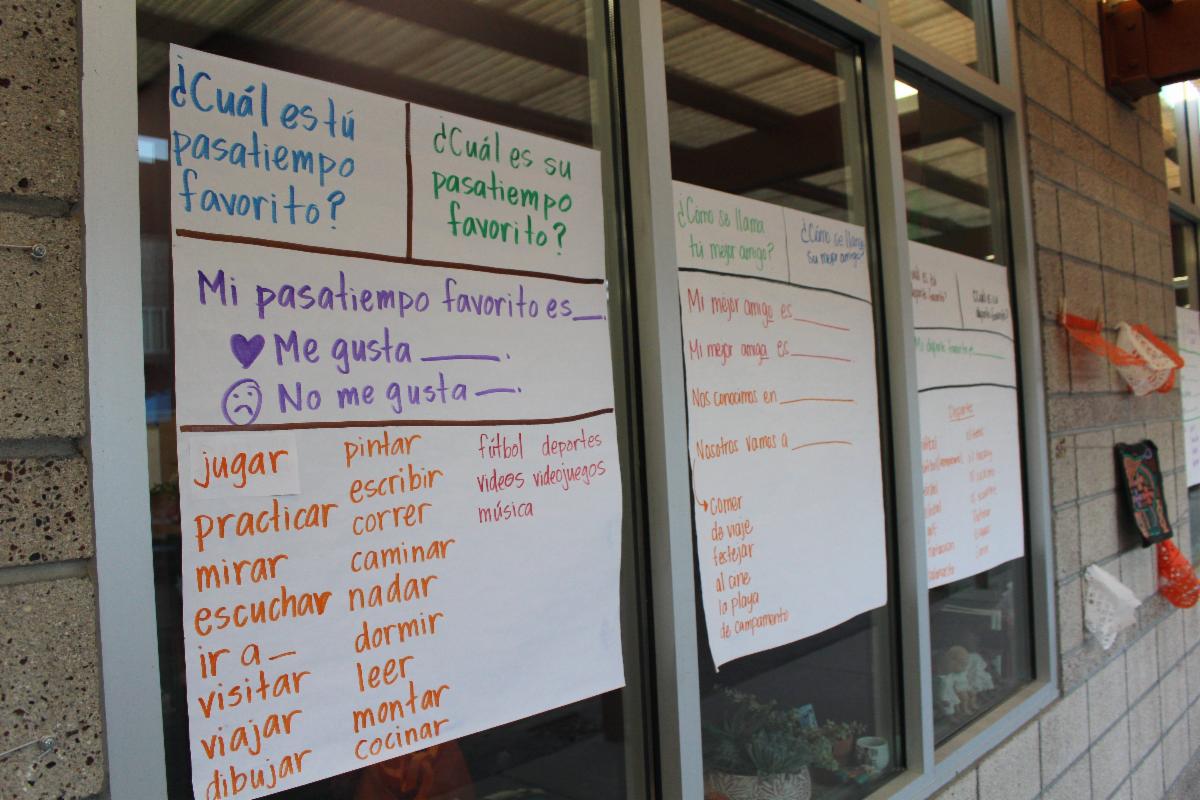 ¿Cuál es tú
pasatiempo
favorito?
¿Cuál es su
pasatiempo
favorito?
Mi pasatiempo favorito es__.
Me gusta ____.
No me gusta __.
jugar
practicar
mirar
escuchar
ir a _
visitar
viajar
dibujar
pintar
escribir
correr
caminar
nadar
dormir
leer
montar
cocinar
fútbol deportes
videos videojuegos
música
¿Cómo se llama
tú mejor amigo?
¿Cómo se llama
su mejor amigo?
Mi mejor amigo es ____
Mi mejor amiga es ____
Nos conocimos en ____
Nosotros vamos a ____
comer
de viaje
festejar
al cine
la playa
de campamento
¿Cuál es su
deporte favorito?
Mi deporte favorito es____
Deportes